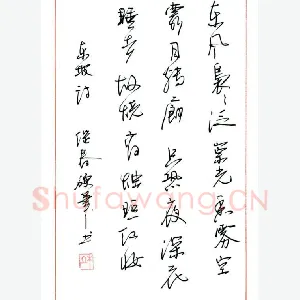 东风袅袅泛崇光香雾空
月转廊只恐夜深花
睡去故烧高烛照红妆
东坡诗
书
Shufawang.CN